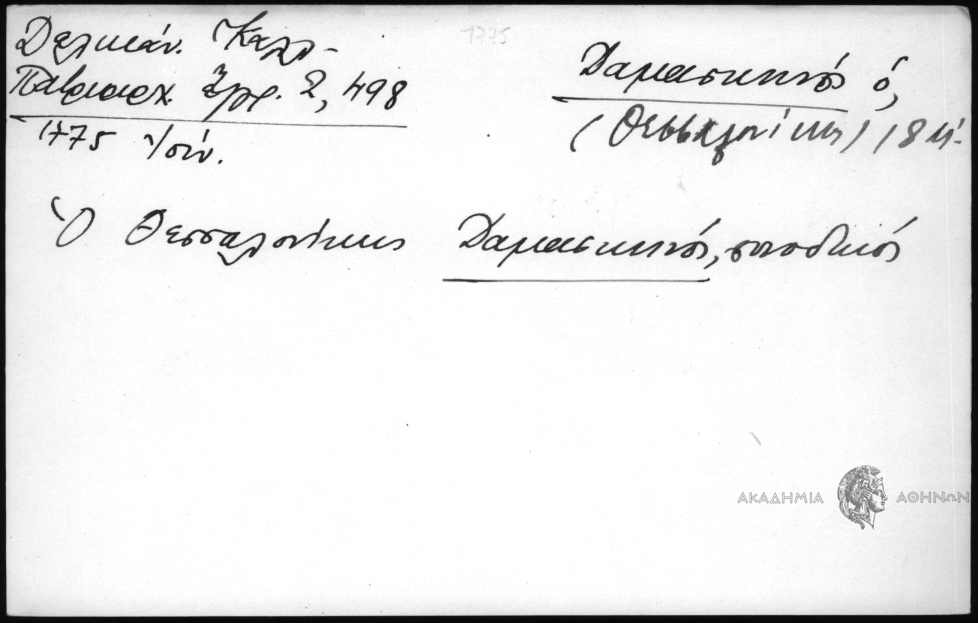 Δελικάν. Καλλ-
Πατριαρχ. Έγγρ. 2, 498
1775 Ἰούν.
1775
Δαμασκηνός ὁ,
(Θεσσαλονίκης) 18
Ὁ Θεσσαλονίκης Δαμασκηνός, συνοδικός
ΑΚΑΔΗΜΙΑ ΑΘΗΝΩΝ